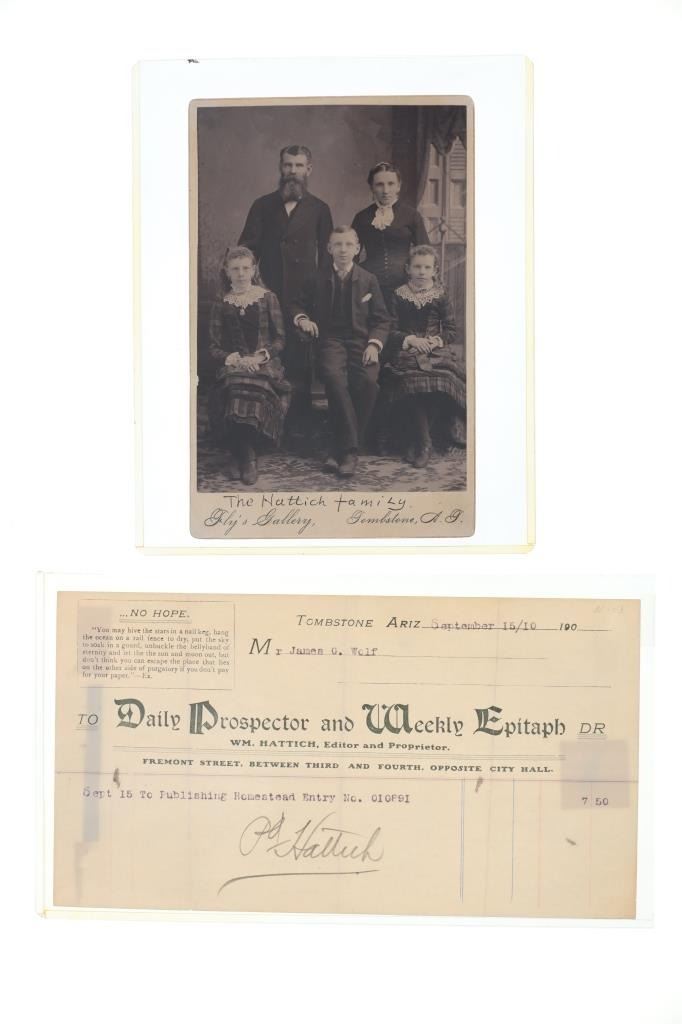 The Hattich Family.
Fly's Gallery, Tombstone, A. T.
...NO HOPE.
"You may hive the stars in a nail keg, hang
the ocean on a rail fence to dry, put the sky
to soak in a gourd, unbuckle the bellyband of
eternity and let the the sun and moon out, but
don't think you can escape the place that lies
on the other side of purgatory if you don't pay
for your paper."—Ex.
TOMBSTONE ARIZ September 15/10 190
Mr James G. Wolf
TO Daily Prospector and Weekly Epitaph DR
WM. HATTICH, Editor and Proprietor.
FREMONT STREET, BETWEEN THIRD AND FOURTH, OPPOSITE CITY HALL.
Sept 15 To Publishing Homestead Entry No. 010891 7 50
Pd Hattich